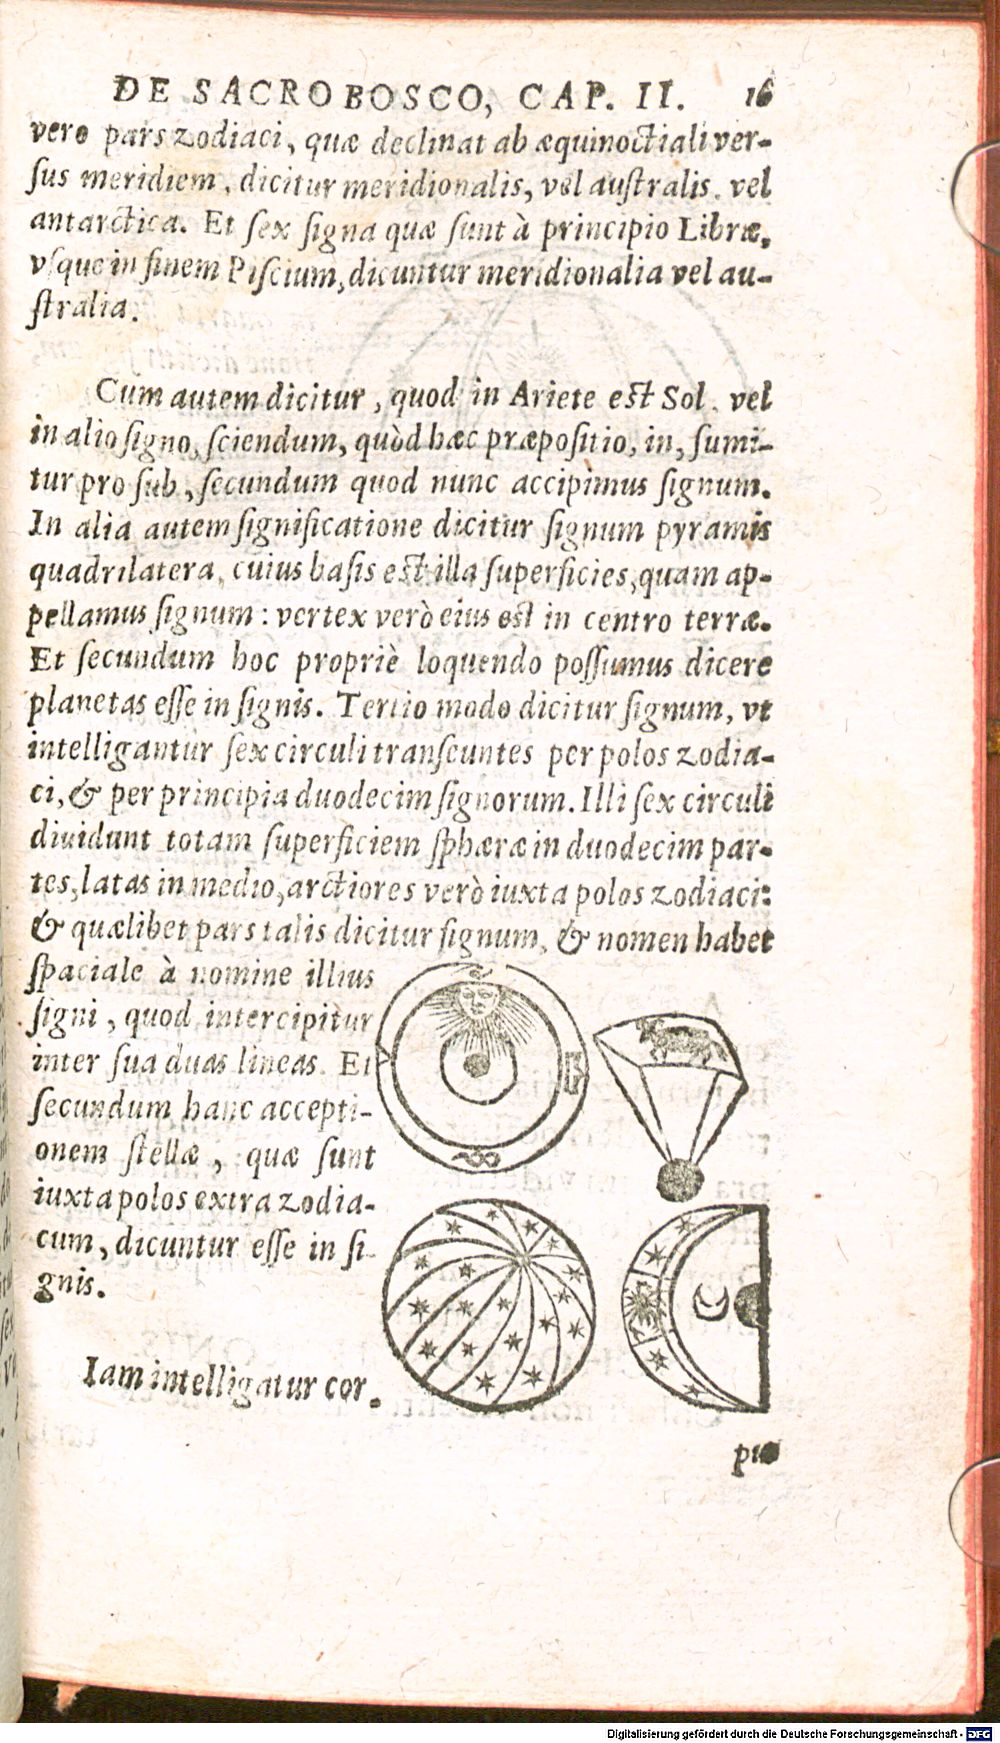 DE SACROBOSCO, CAP. II. 16
vero pars zodiaci, quæ declinat ab æquinoctiali ver-
sus meridiem, dicitur meridionalis, vel australis, vel
antarctica. Et sex signa quæ sunt à principio Libræ,
vsque in finem Piscium, dicuntur meridionalia vel au-
stralia.
Cum autem dicitur, quod in Ariete est Sol, vel
in alio signo, sciendum, quòd hæc præpositio, in, sumi-
tur pro sub, secundum quod nunc accipimus signum.
In alia autem significatione dicitur signum pyramis
quadrilatera, cuius basis est illa superficies, quam ap-
pellamus signum: vertex verò eius est in centro terræ.
Et secundum hoc propriè loquendo possumus dicere
planetas esse in signis. Tertio modo dicitur signum, vt
intelligantur sex circuli transeuntes per polos zodia-
ci, & per principia duodecim signorum. Illi sex circuli
diuidunt totam superficiem sphæræ in duodecim par-
tes, latas in medio, arctiores verò iuxta polos zodiaci:
& quælibet pars talis dicitur signum, & nomen habet
spaciale à nomine illius
signi, quod intercipitur
inter sua duas lineas. Et
secundum hanc accepti-
onem stellæ, quæ sunt
iuxta polos extra zodia-
cum, dicuntur esse in si-
gnis.
Iam intelligatur cor-
Digitalisierung gefördert durch die Deutsche Forschungsgemeinschaft - DFG